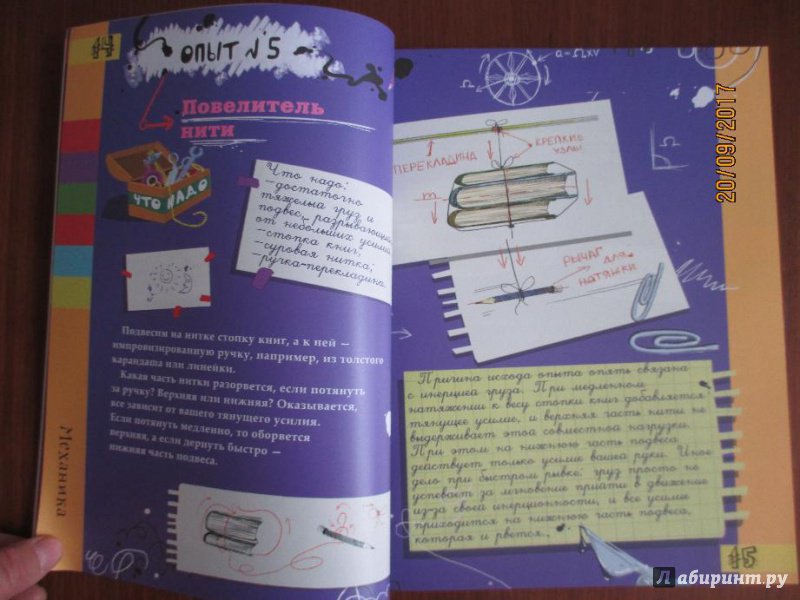 14
ОПЫТ N 5
Повелитель
нити
ЧТО НАДО
Что надо:
– достаточно
тяжелый груз и
подвес, разрывающийся
от небольших усилий
– стопка книг,
– суровая нитка;
– ручка-перекладина
Подвесим на нитке стопку книг, а к ней —
импровизированную ручку, например, из толстого
карандаша или линейки.
Какая часть нитки разорвется, если потянуть
за ручку? Верхняя или нижняя? Оказывается,
все зависит от вашего тянущего усилия.
Если потянуть медленно, то оборвется
верхняя, а если дернуть быстро —
нижняя часть подвеса.
Механика
ПЕРЕКЛАДИНА
КРЕПКИЕ
УЗЛЫ
m
РЫЧАГ ДЛЯ
НАТЯЖКИ
Причина исхода опыта опять связана
с инерцией груза. При медленном
натяжении к весу стопки книг добавляется
тянущее усилие, и верхняя часть нити не
выдерживает этой совместной нагрузки.
При этом на нижнюю часть подвеса
действует только усилие вашей руки. Иное
дело при быстром рывке: груз просто не
успевает за мгновение прийти в движение
из-за своей инерционности, и все усилие
приходится на нижнюю часть подвеса,
которая и рвется.
15
20/09/2017
Лабиринт.ру